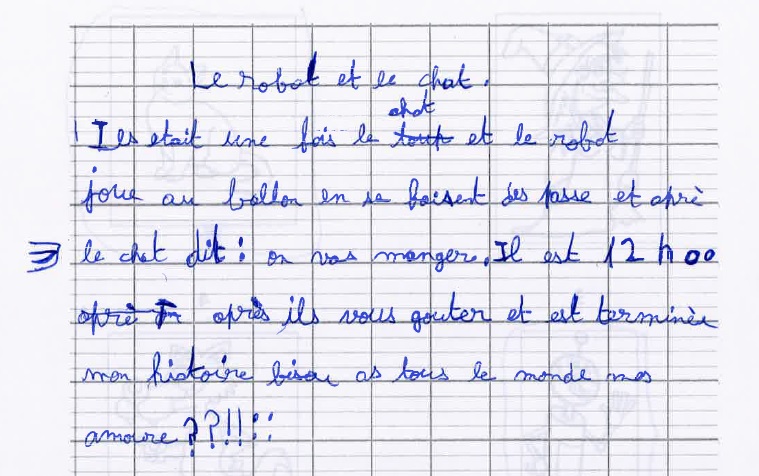 Le robot et le chat.
chat
Iles etait une fois le toup et le robot
joue au ballon en se faisent des passe et aprè
le chat dit : on vas manger. Il est 12 h 00
aprè après ils vous gouter et est terminèe
mon histoire bisou as tous le monde mes
amoure ??!!::